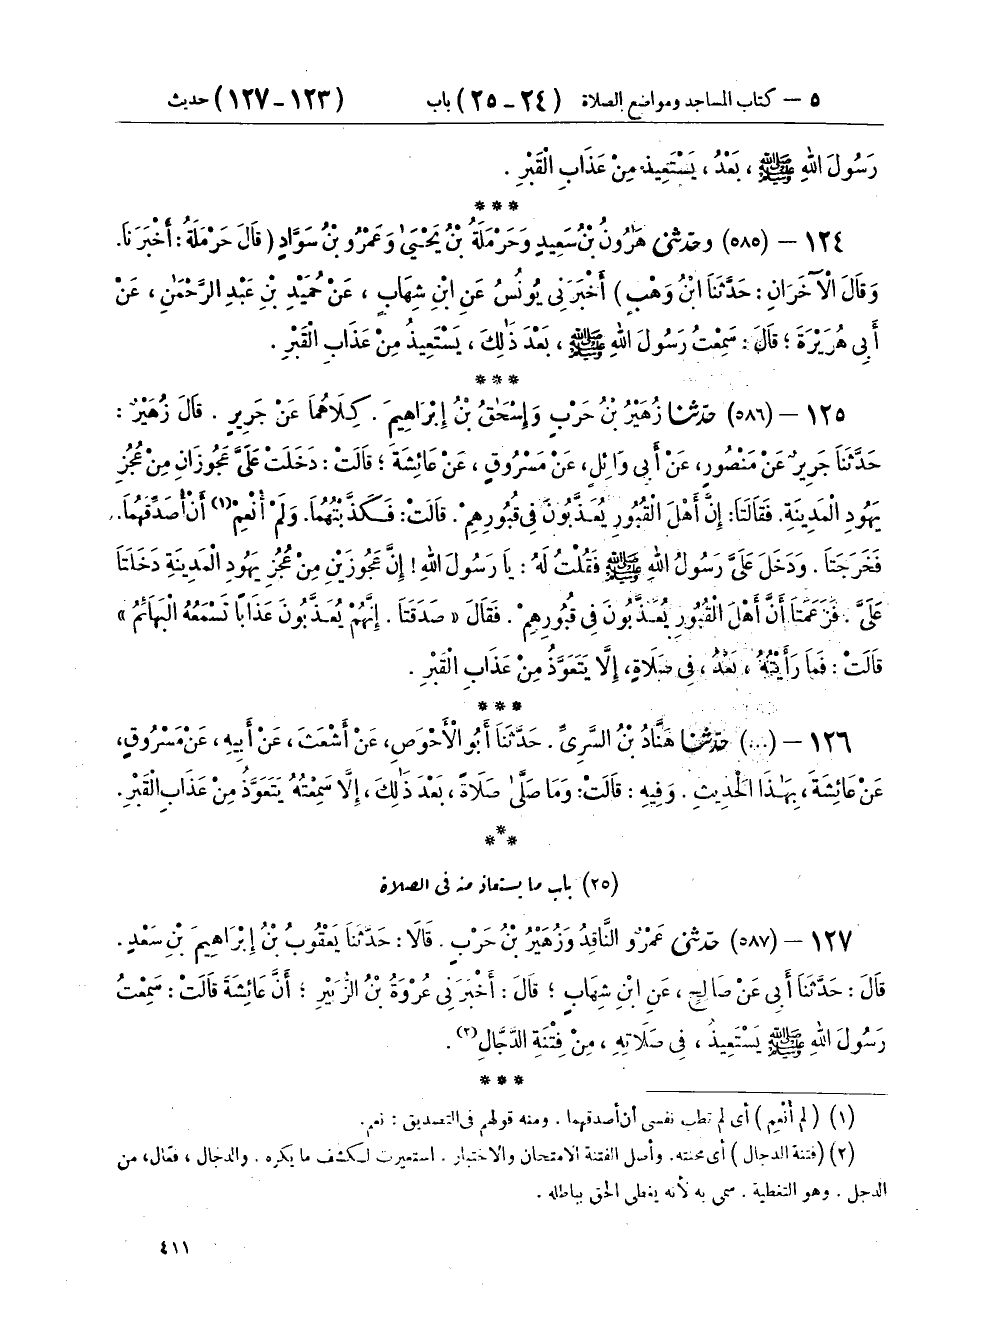 ٥ – كتاب المساجد ومواضع الصلاة (٢٤ – ٢٥) باب (١٢٣ – ١٢٧) حديث
رَسُولَ اللهِ ﷺ ، بَعْدُ ، يَسْتَعِيذُ مِنْ عَذَابِ الْقَبْرِ .
***
١٢٤ – (٥٨٥) وحَدَّثَنِي هَٰرُونُ بْنُ سَعِيدٍ وَحَرْمَلَةُ بْنُ يَحْيَىٰ وَعَمْرُو بْنُ سَوَّادٍ (قَالَ حَرْمَلَةُ : أَخْبَرَنَا .
وَقَالَ الْآخَرَانِ : حَدَّثَنَا ابْنُ وَهْبٍ) أَخْبَرَنِي يُونُسُ عَنِ ابْنِ شِهَابٍ ، عَنْ حُمَيْدِ بْنِ عَبْدِ الرَّحْمٰنِ ، عَنْ
أَبِي هُرَيْرَةَ ؛ قَالَ : سَمِعْتُ رَسُولَ اللهِ ﷺ ، بَعْدَ ذَٰلِكَ ، يَسْتَعِيذُ مِنْ عَذَابِ الْقَبْرِ .
***
١٢٥ – (٥٨٦) حَدَّثَنَا زُهَيْرُ بْنُ حَرْبٍ وَإِسْحَٰقُ بْنُ إِبْرَاهِيمَ . كِلَاهُمَا عَنْ جَرِيرٍ . قَالَ زُهَيْرٌ :
حَدَّثَنَا جَرِيرٌ عَنْ مَنْصُورٍ ، عَنْ أَبِي وَائِلٍ ، عَنْ مَسْرُوقٍ ، عَنْ عَائِشَةَ ؛ قَالَتْ : دَخَلَتْ عَلَىَّ عَجُوزَانِ مِنْ عُجُزِ
يَهُودِ الْمَدِينَةِ . فَقَالَتَا : إِنَّ أَهْلَ الْقُبُورِ يُعَذَّبُونَ فِي قُبُورِهِمْ . قَالَتْ : فَكَذَّبْتُهُمَا . وَلَمْ أُنْعِمْ (١) أَنْ أُصَدِّقَهُمَا .
فَخَرَجَتَا . وَدَخَلَ عَلَىَّ رَسُولُ اللهِ ﷺ فَقُلْتُ لَهُ : يَا رَسُولَ اللهِ ! إِنَّ عَجُوزَيْنِ مِنْ عُجُزِ يَهُودِ الْمَدِينَةِ دَخَلَتَا
عَلَىَّ . فَزَعَمَتَا أَنَّ أَهْلَ الْقُبُورِ يُعَذَّبُونَ فِي قُبُورِهِمْ . فَقَالَ « صَدَقَتَا . إِنَّهُمْ يُعَذَّبُونَ عَذَابًا تَسْمَعُهُ الْبَهَائِمُ »
قَالَتْ : فَمَا رَأَيْتُهُ ، بَعْدُ ، فِي صَلَاةٍ ، إِلَّا يَتَعَوَّذُ مِنْ عَذَابِ الْقَبْرِ .
***
١٢٦ – (...) حَدَّثَنَا هَنَّادُ بْنُ السَّرِيِّ . حَدَّثَنَا أَبُو الْأَحْوَصِ ، عَنْ أَشْعَثَ ، عَنْ أَبِيهِ ، عَنْ مَسْرُوقٍ ،
عَنْ عَائِشَةَ ، بِهَٰذَا الْحَدِيثِ . وَفِيهِ : قَالَتْ : وَمَا صَلَّىٰ صَلَاةً ، بَعْدَ ذَٰلِكَ ، إِلَّا سَمِعْتُهُ يَتَعَوَّذُ مِنْ عَذَابِ الْقَبْرِ .
***
(٢٥) باب ما يستعاذ منه فى الصلاة
١٢٧ – (٥٨٧) حَدَّثَنِي عَمْرٌو النَّاقِدُ وَزُهَيْرُ بْنُ حَرْبٍ . قَالَا : حَدَّثَنَا يَعْقُوبُ بْنُ إِبْرَاهِيمَ بْنِ سَعْدٍ .
قَالَ : حَدَّثَنَا أَبِي عَنْ صَالِحٍ ، عَنِ ابْنِ شِهَابٍ ؛ قَالَ : أَخْبَرَنِي عُرْوَةُ بْنُ الزُّبَيْرِ ؛ أَنَّ عَائِشَةَ قَالَتْ : سَمِعْتُ
رَسُولَ اللهِ ﷺ يَسْتَعِيذُ ، فِي صَلَاتِهِ ، مِنْ فِتْنَةِ الدَّجَّالِ (٢) .
***
(١) (لم أُنْعِم) أى لم تطب نفسى أن أصدقهما . ومنه قولهم فى التصديق : نعم .
(٢) (فتنة الدجال) أى محنته. وأصل الفتنة الامتحان والاختبار . استعيرت لكشف ما يكره . والدجال ، فعّال، من
الدجل . وهو التغطية . سمى به لأنه يغطى الحق بباطله .
٤١١